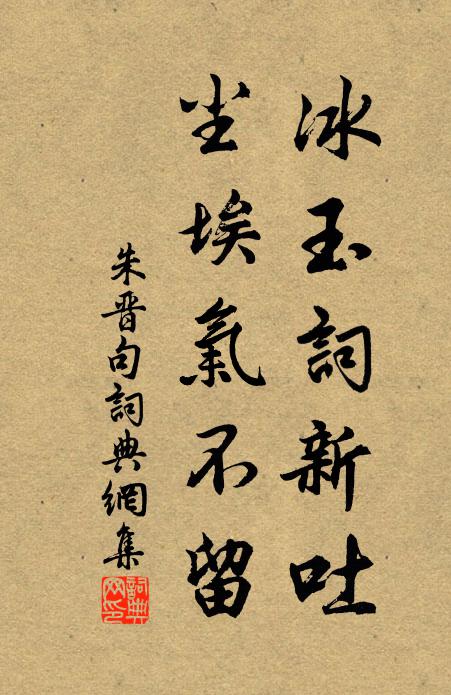 冰玉詞新吐
尘埃氣不留
朱晋句詞典網集
詞典网印